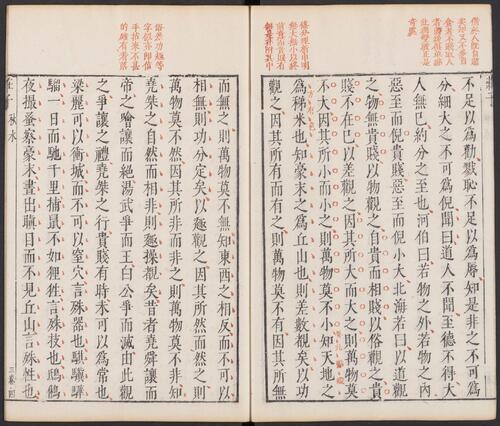 不足以爲勸戮恥不足以爲辱知是非之不可爲
分細大之不可爲倪聞曰道人不聞至德不得大
人無己約分之至也河伯曰若物之外若物之內
惡至而倪貴賤惡至而倪小大北海若曰以道觀
之物無貴賤以物觀之自貴而相賤以俗觀之貴
賤不在己以差觀之因其所大而大之則萬物莫
不大因其所小而小之則萬物莫不小知天地之
爲稊米也知豪末之爲丘山也則差數覩矣以功
觀之因其所有而有之則萬物莫不有因其所無
而無之則萬物莫不無知東西之相反而不可以
相無則功分定矣以趣觀之因其所然而然之則
萬物莫不然因其所非而非之則萬物莫不非知
堯桀之自然而相非則趣操覩矣昔者堯舜讓而
帝之噲讓而絕湯武爭而王白公爭而滅由此觀
之爭讓之禮堯桀之行貴賤有時未可以爲常也
梁麗可以衝城而不可以窒穴言殊器也騏驥驊
騮一日而馳千里捕鼠不如狸狌言殊技也鴟鵂
夜撮蚤察豪末晝出瞋目而不見丘山言殊性也
莊子 秋水
三卷 四